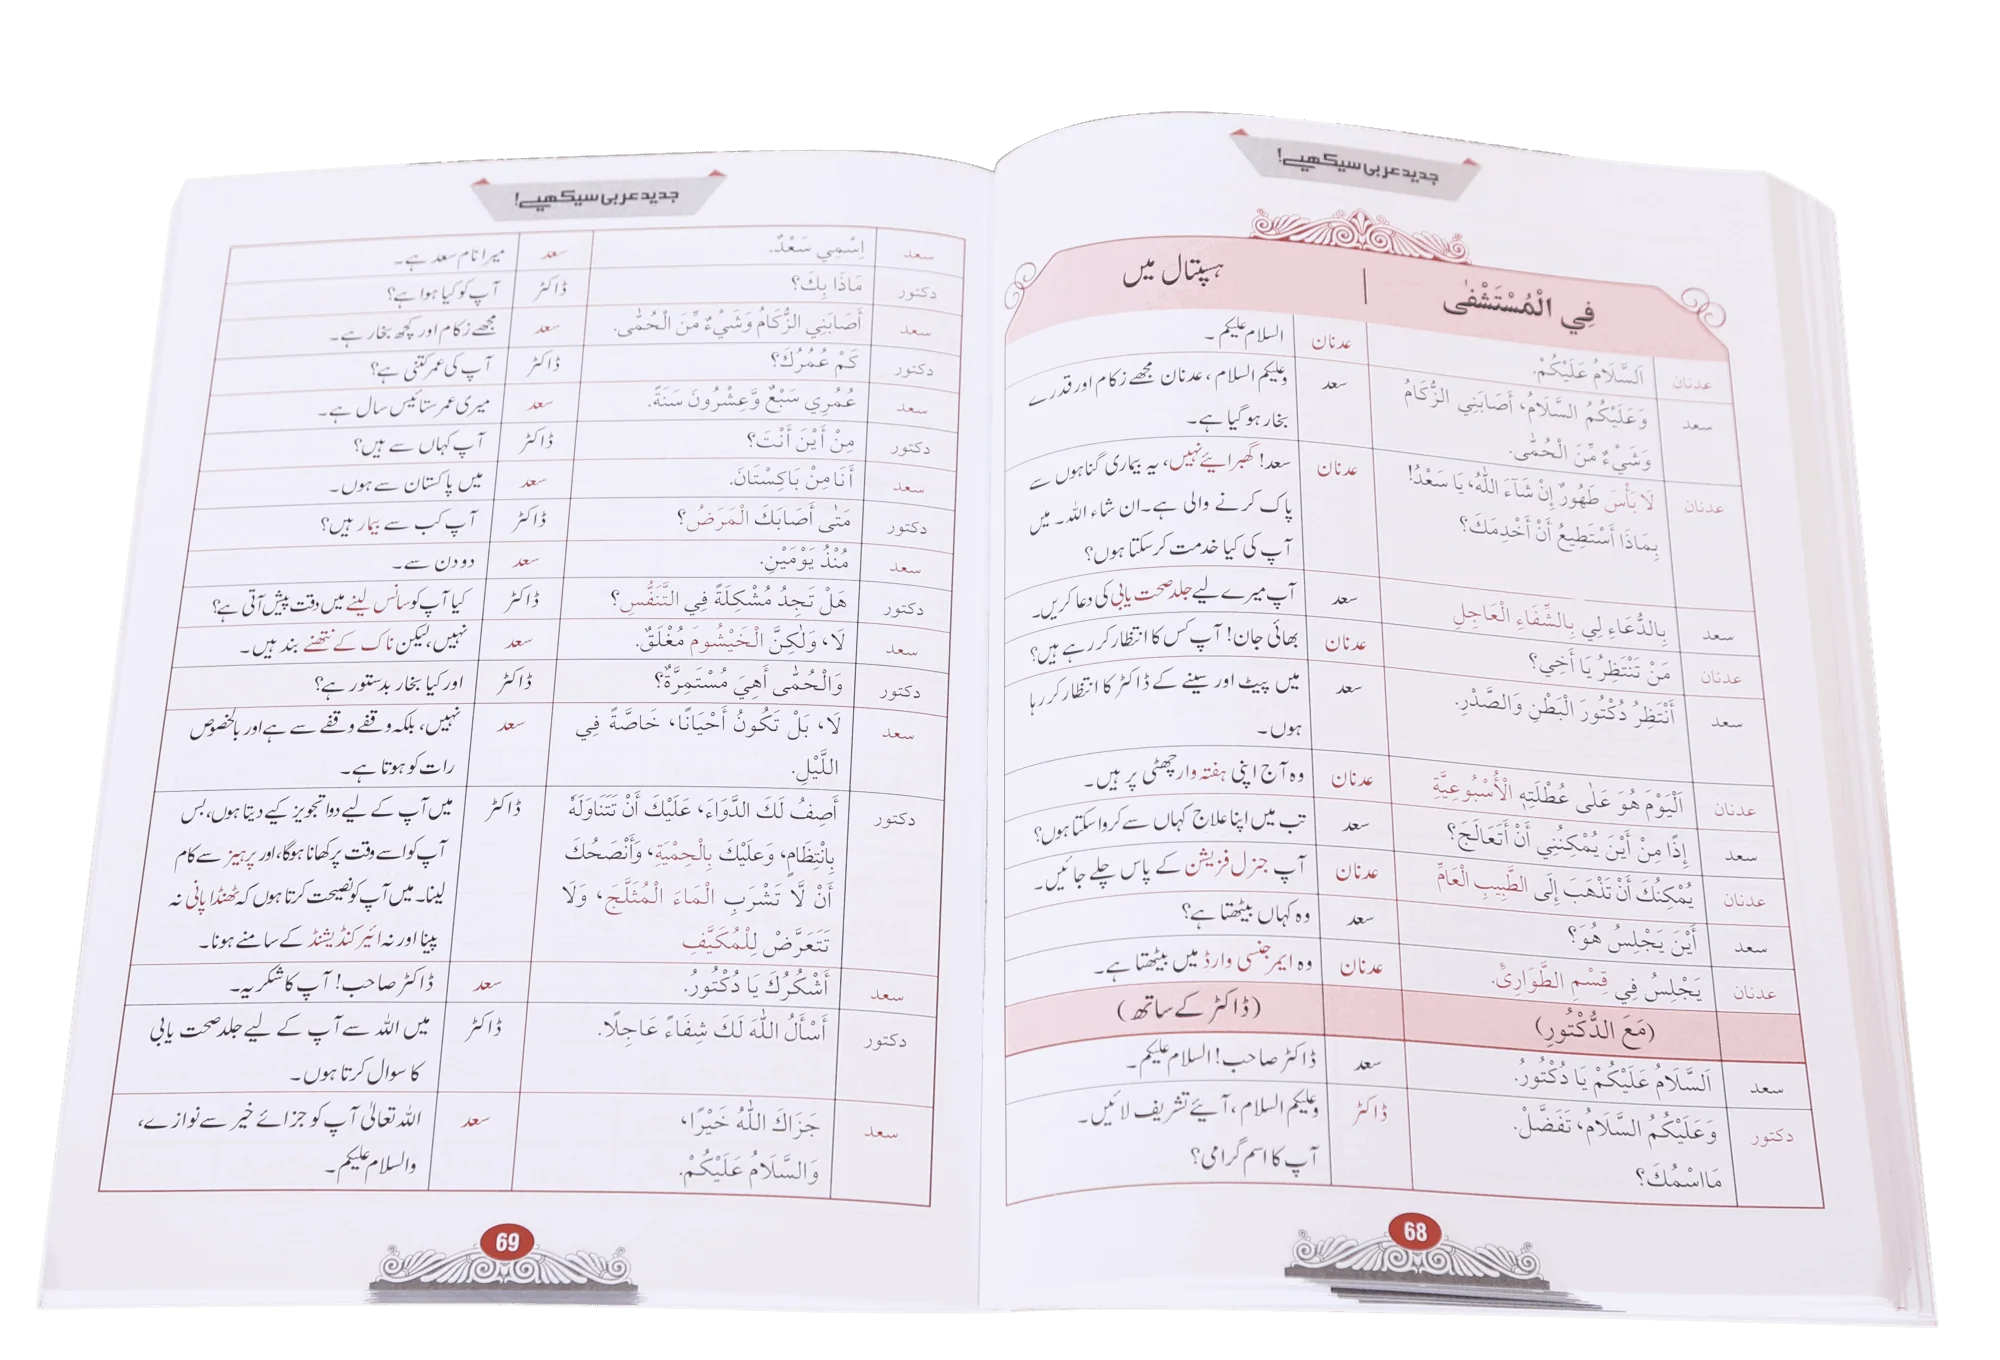 جدید عربی سیکھیے!
فِي الْمُسْتَشْفٰى | ہسپتال میں
عدنان اَلسَّلَامُ عَلَيْكُمْ. عدنان السلام علیکم۔
سعد وَعَلَيْكُمُ السَّلَامُ، أَصَابَنِي الزُّكَامُ سعد وعلیکم السلام، عدنان مجھے زکام اور قدرے
وَشَيْءٌ مِّنَ الْحُمّٰى. بخار ہو گیا ہے۔
عدنان لَا بَأْسَ طَهُورٌ إِنْ شَآءَ اللّٰهُ، يَا سَعْدُ! عدنان سعد! گھبرائیے نہیں، یہ بیماری گناہوں سے
بِمَاذَا أَسْتَطِيعُ أَنْ أَخْدِمَكَ؟ پاک کرنے والی ہے۔ ان شاء اللہ۔ میں
آپ کی کیا خدمت کر سکتا ہوں؟
سعد بِالدُّعَاءِ لِي بِالشِّفَاءِ الْعَاجِلِ سعد آپ میرے لیے جلد صحت یابی کی دعا کریں۔
عدنان مَنْ تَنْتَظِرُ يَا أَخِي؟ عدنان بھائی جان! آپ کس کا انتظار کر رہے ہیں؟
سعد أَنْتَظِرُ دُكْتُورَ الْبَطْنِ وَالصَّدْرِ. سعد میں پیٹ اور سینے کے ڈاکٹر کا انتظار کر رہا
ہوں۔
عدنان اَلْيَوْمَ هُوَ عَلٰى عُطْلَتِهِ الْأُسْبُوعِيَّةِ عدنان وہ آج اپنی ہفتہ وار چھٹی پر ہیں۔
سعد إِذًا مِنْ أَيْنَ يُمْكِنُنِي أَنْ أَتَعَالَجَ؟ سعد تب میں اپنا علاج کہاں سے کروا سکتا ہوں؟
عدنان يُمْكِنُكَ أَنْ تَذْهَبَ إِلَى الطَّبِيبِ الْعَامِّ عدنان آپ جنرل فزیشن کے پاس چلے جائیں۔
سعد أَيْنَ يَجْلِسُ هُوَ؟ سعد وہ کہاں بیٹھتا ہے؟
عدنان يَجْلِسُ فِي قِسْمِ الطَّوَارِئِ. عدنان وہ ایمرجنسی وارڈ میں بیٹھتا ہے۔
(مَعَ الدُّكْتُورِ) (ڈاکٹر کے ساتھ)
سعد اَلسَّلَامُ عَلَيْكُمْ يَا دُكْتُورُ. سعد ڈاکٹر صاحب! السلام علیکم۔
دكتور وَعَلَيْكُمُ السَّلَامُ، تَفَضَّلْ. ڈاکٹر وعلیکم السلام، آیئے تشریف لائیں۔
مَا اسْمُكَ؟ آپ کا اسم گرامی؟
68
جدید عربی سیکھیے!
سعد اِسْمِي سَعْدٌ. سعد میرا نام سعد ہے۔
دكتور مَاذَا بِكَ؟ ڈاکٹر آپ کو کیا ہوا ہے؟
سعد أَصَابَنِي الزُّكَامُ وَشَيْءٌ مِّنَ الْحُمّٰى. سعد مجھے زکام اور کچھ بخار ہے۔
دكتور كَمْ عُمُرُكَ؟ ڈاکٹر آپ کی عمر کتنی ہے؟
سعد عُمُرِي سَبْعٌ وَّعِشْرُونَ سَنَةً. سعد میری عمر ستائیس سال ہے۔
دكتور مِنْ أَيْنَ أَنْتَ؟ ڈاکٹر آپ کہاں سے ہیں؟
سعد أَنَا مِنْ بَاكِسْتَانَ. سعد میں پاکستان سے ہوں۔
دكتور مَتٰى أَصَابَكَ الْمَرَضُ؟ ڈاکٹر آپ کب سے بیمار ہیں؟
سعد مُنْذُ يَوْمَيْنِ. سعد دو دن سے۔
دكتور هَلْ تَجِدُ مُشْكِلَةً فِي التَّنَفُّسِ؟ ڈاکٹر کیا آپ کو سانس لینے میں دقت پیش آتی ہے؟
سعد لَا، وَلٰكِنَّ الْخَيْشُومَ مُغْلَقٌ. سعد نہیں، لیکن ناک کے نتھنے بند ہیں۔
دكتور وَالْحُمّٰى أَهِيَ مُسْتَمِرَّةٌ؟ ڈاکٹر اور کیا بخار بدستور ہے؟
سعد لَا، بَلْ تَكُونُ أَحْيَانًا، خَاصَّةً فِي سعد نہیں، بلکہ وقفے وقفے سے ہے اور بالخصوص
اللَّيْلِ. رات کو ہوتا ہے۔
دكتور أَصِفُ لَكَ الدَّوَاءَ، عَلَيْكَ أَنْ تَتَنَاوَلَهُ ڈاکٹر میں آپ کے لیے دوا تجویز کیے دیتا ہوں، بس
بِانْتِظَامٍ، وَعَلَيْكَ بِالْحِمْيَةِ، وَأَنْصَحُكَ آپ کو اسے وقت پر کھانا ہوگا، اور پرہیز سے کام
أَنْ لَّا تَشْرَبِ الْمَاءَ الْمُثَلَّجَ، وَلَا لینا۔ میں آپ کو نصیحت کرتا ہوں کہ ٹھنڈا پانی نہ
تَتَعَرَّضْ لِلْمُكَيَّفِ پینا اور نہ ائیر کنڈیشنڈ کے سامنے ہونا۔
سعد أَشْكُرُكَ يَا دُكْتُورُ. سعد ڈاکٹر صاحب! آپ کا شکریہ۔
دكتور أَسْأَلُ اللّٰهَ لَكَ شِفَاءً عَاجِلًا. ڈاکٹر میں اللہ سے آپ کے لیے جلد صحت یابی
کا سوال کرتا ہوں۔
سعد جَزَاكَ اللّٰهُ خَيْرًا، سعد اللہ تعالیٰ آپ کو جزائے خیر سے نوازے،
وَالسَّلَامُ عَلَيْكُمْ. والسلام علیکم۔
69